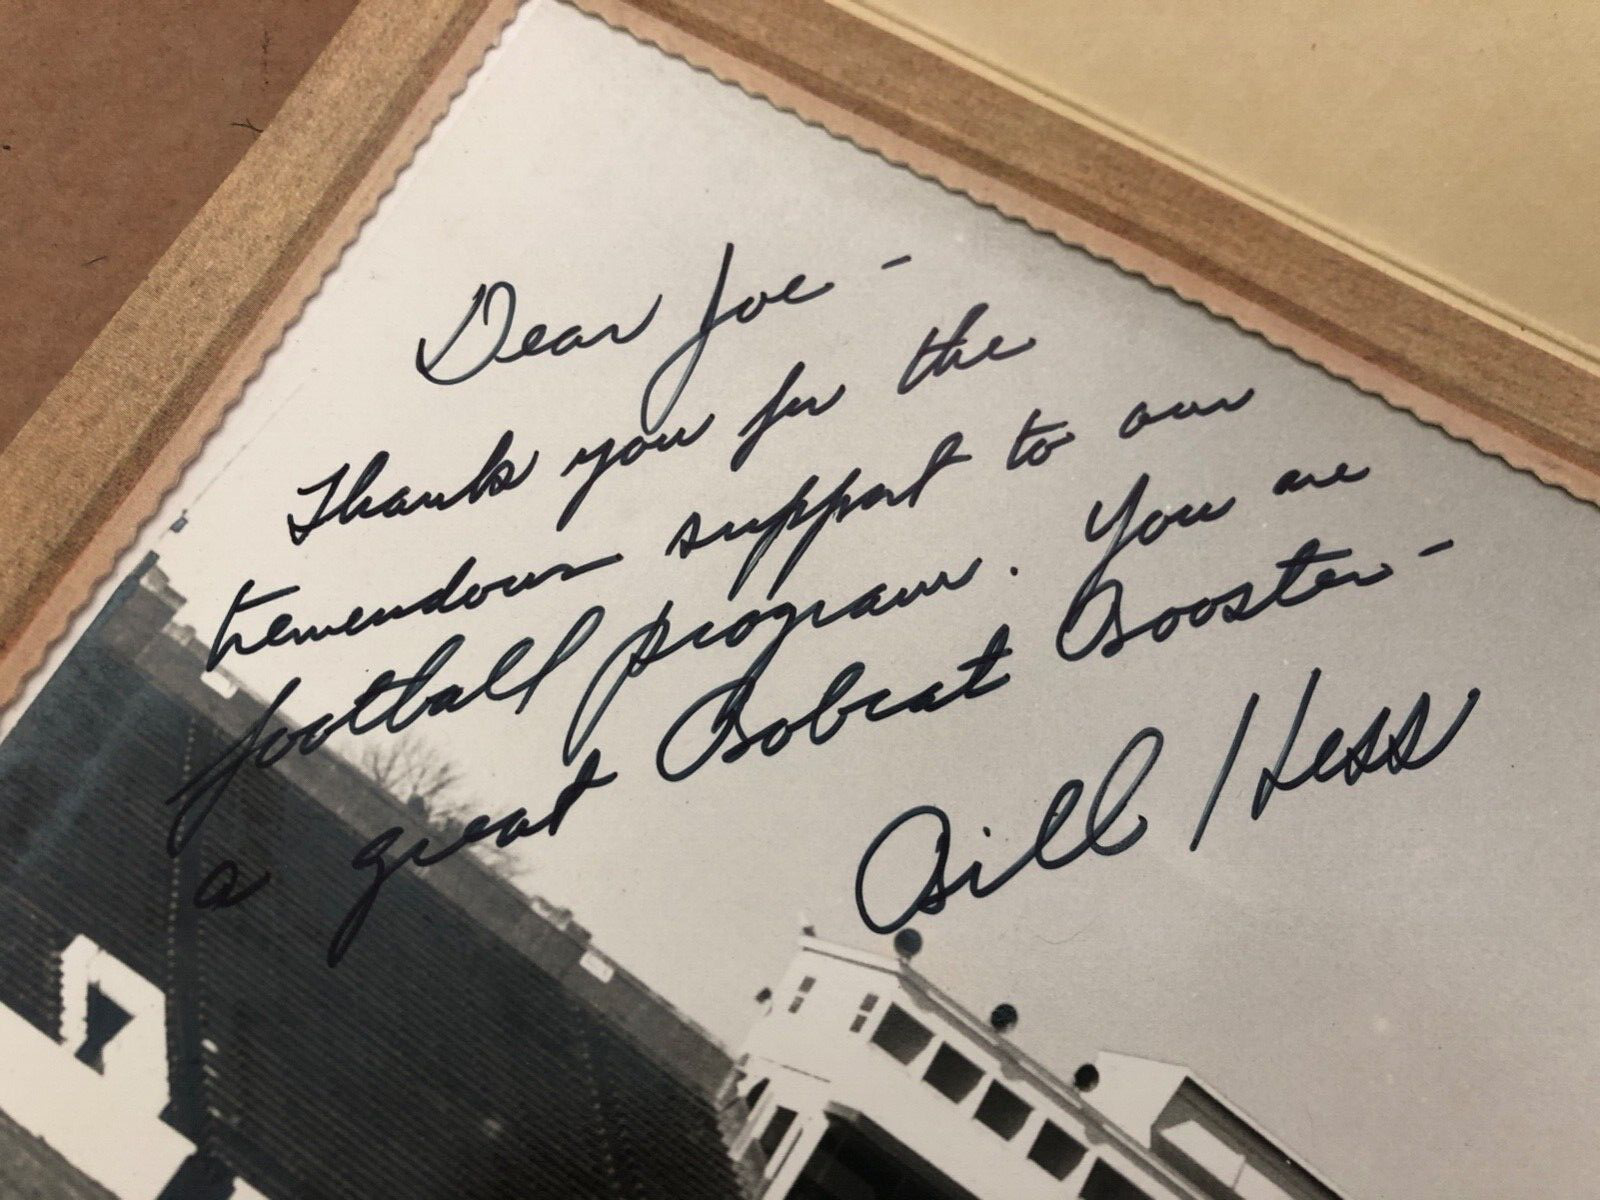 Dear Joe -
Thanks you for the
tremendous support to our
football program. You are
a great Bobcat Booster -
Bill Hess